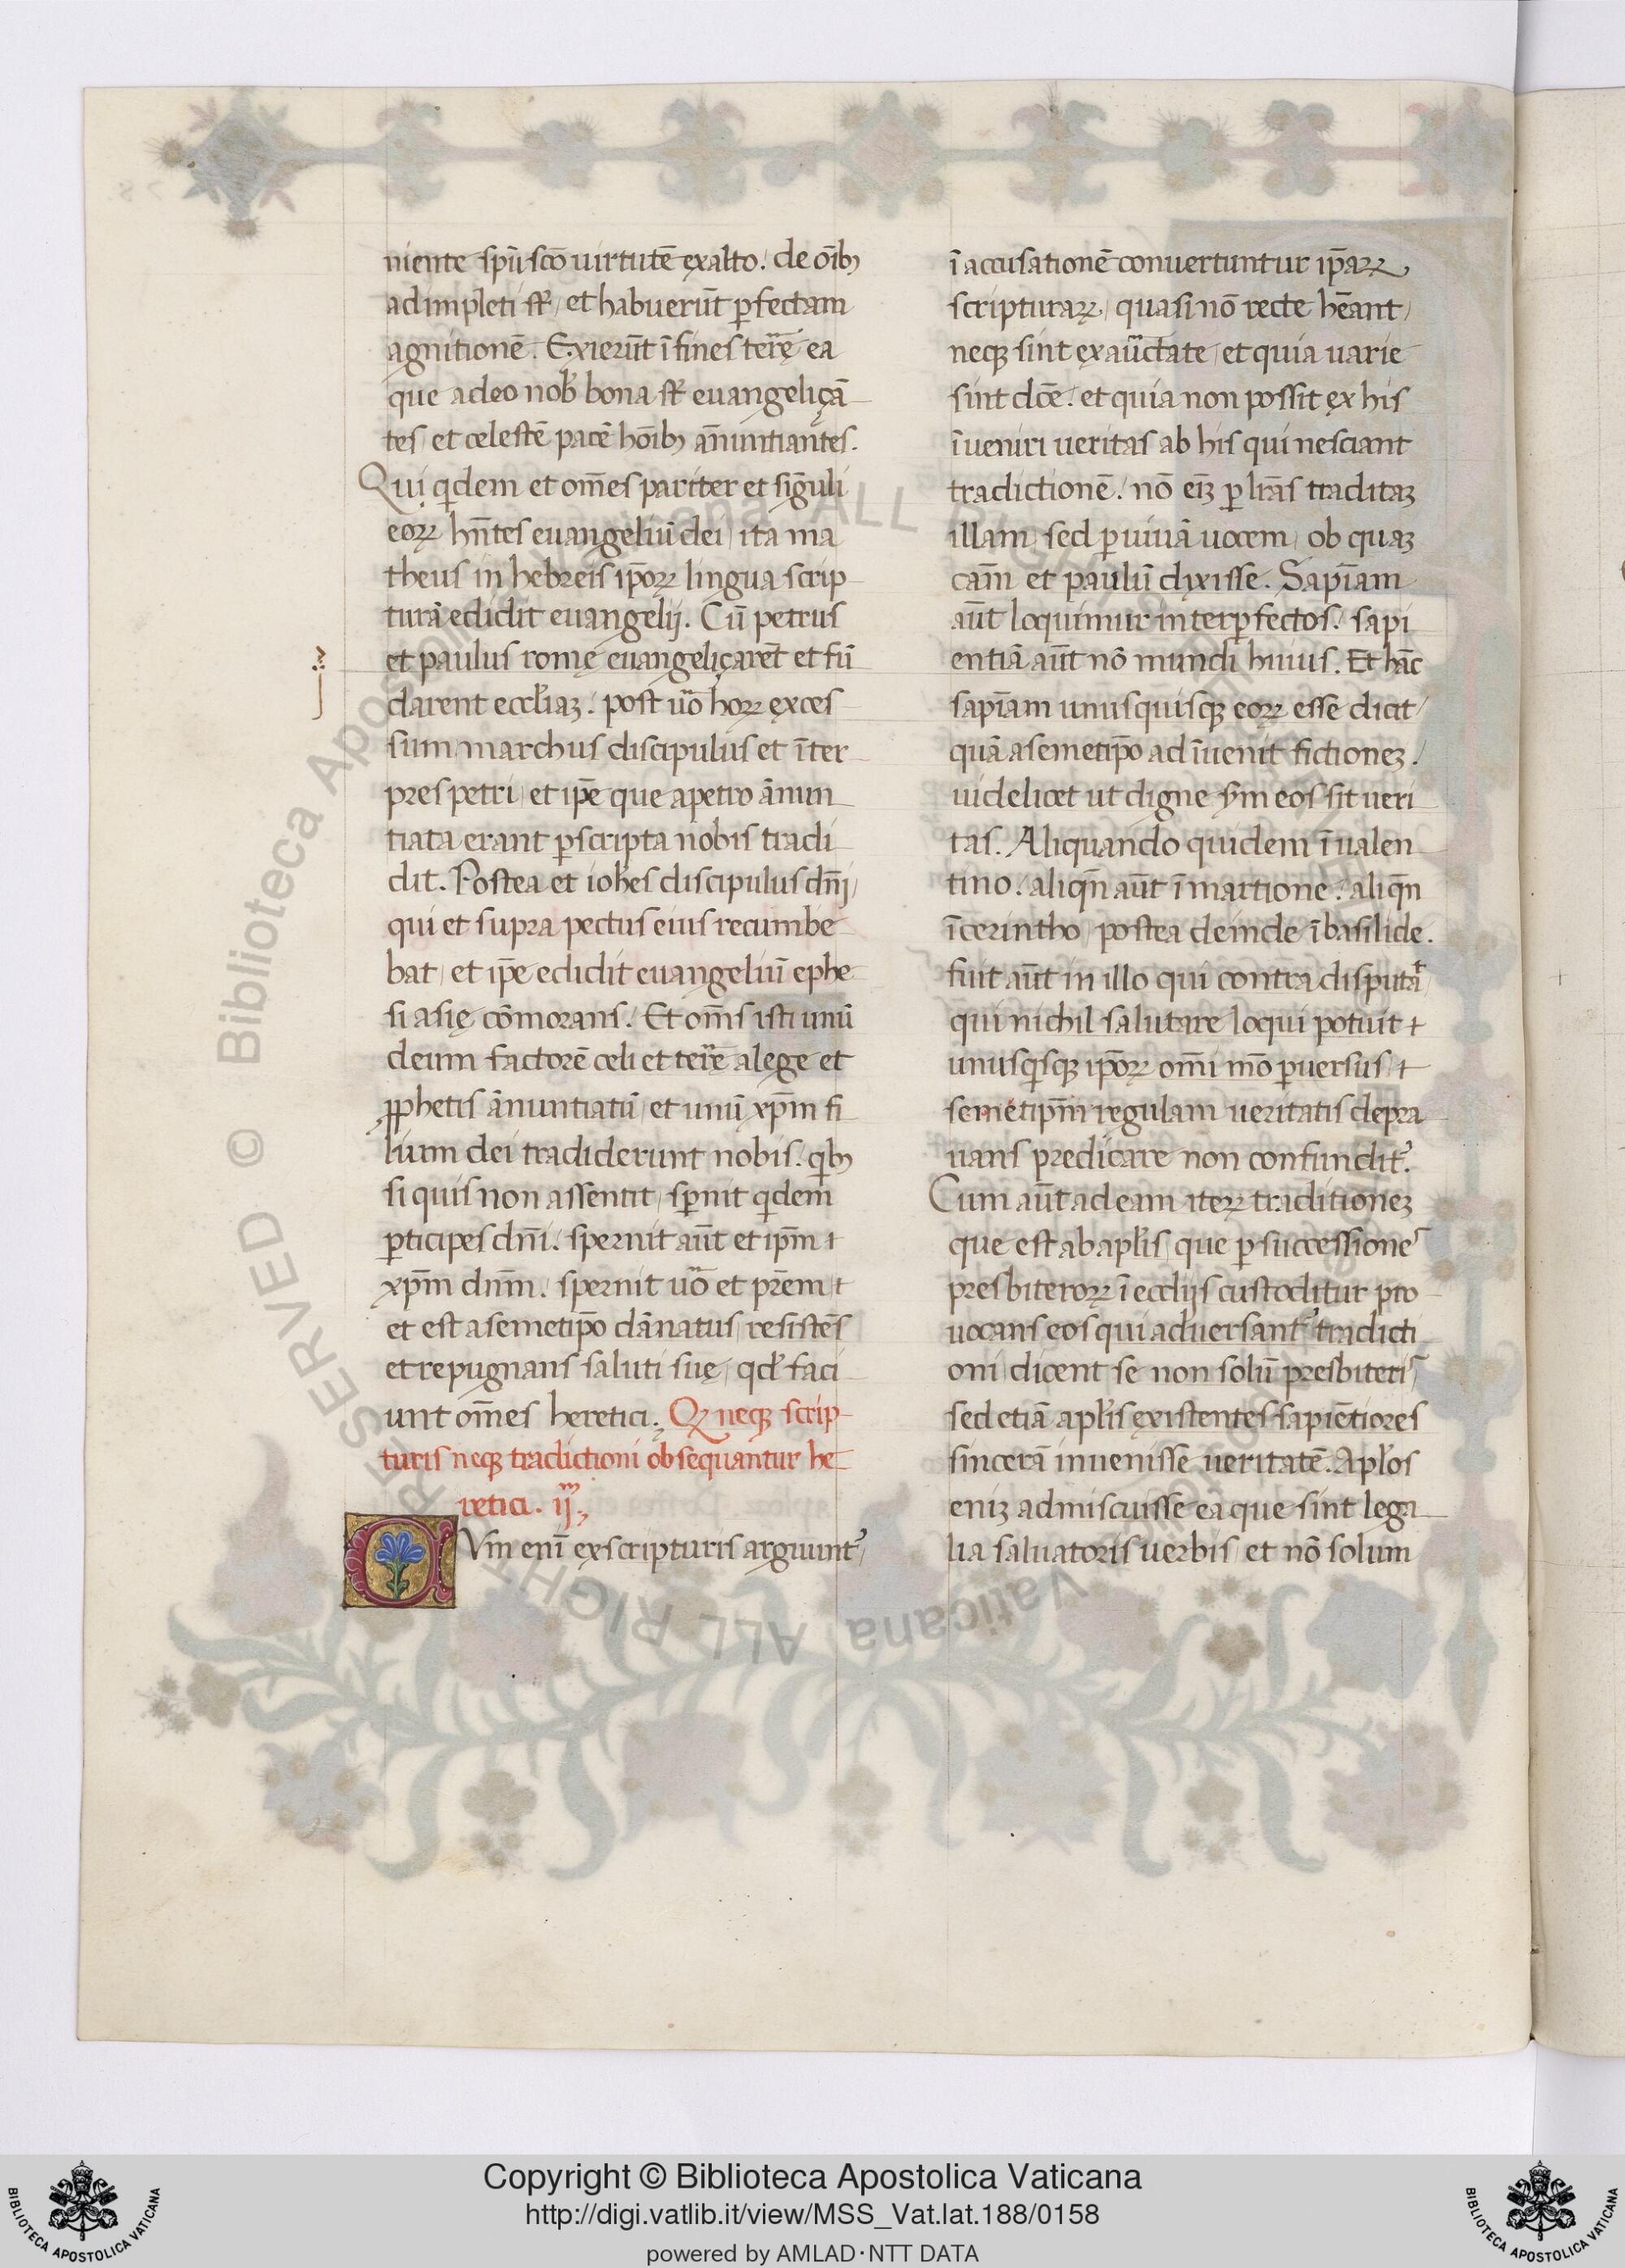 niente spũ sco᷑ uirtutē ęxalto. de oi᷑bꝫ
adimpleti sť, et habuerũt ꝑfectam
agnitionē. Exierũt ĩ fines terrę ea
que adeo nob̛ bona sť euangeliçã
tes et celestē pacē ho᷑ibꝫ añnuntiantes.
Qui qͥdem et om̃es pariter et siñguli
eoꝝ hñtes euangeliũ dei, ita ma
theus in hebreis ip̃oꝝ lingua scrip
turã edidit euangelij. Cũ petrus
et paulus romę euangeliçarēt et fũ
darent eccl̃iaꝫ. post ũo hoꝝ ęxces
sum marchus discipulus et ĩter
pres petri, et ip̃e que apetro ãnun
tiata erant ꝑscripta nobis tradi
dit. Postea et ioħes discipulus dñi,
qui et supra pectus eius recumbe
bat, et ip̃e edidit euangeliũ ephe
si asię cõmorans. Et om̃s isti unũ
deum factorē celi et terrę alege et
ꝓphetis ãnuntiatũ et unũ xp̃m fi
lium dei tradiderunt nobis. qͥbꝫ
si quis non assentit, sꝑnit qͥdem
ꝑticipes dñi. spernit aũt et ip̃m ⁊
xp̃m dñm. spernit ũo et pr̃em ⁊
et est asemetip̃o dãnatus, resistẽs
et repugnans saluti suę, qđ faci
unt om̃es heretici. Qꝫ neqꝫ scrip
turis neqꝫ tradictioni obsequantur he
retici. ijᵐ.
CVm enĩ ęxscripturis arguunt᷑,
ĩ accusationē conuertuntur ip̃aꝝ
scripturaꝝ, quasi nõ recte hẽant,
neqꝫ sint ęxaũctate, et quia uarie
sint dc̃e. et quia non possit ęx his
ĩueniri ueritas ab his qui nesciant
tradictionē. nõ eĩꝫ ꝑ lr̃as traditaꝫ
illam, sed ꝑ uiuã uocem, ob quaꝫ
cam̃ et paulũ dixisse. Sapĩam
aũt loquimur interꝑfectos. sapi
entiã aũt nõ mundi huius. Et hãc
sapĩam unusquisqꝫ eoꝝ esse dicit,
quã asemetip̃o ad ĩuenit fictioneꝫ.
uidelicet ut digne sᷤm eos sit ueri
tas. Aliquando quidem ĩ ualen
tino. aliqñ aũt ĩ martione. aliqñ
ĩ cerintho, postea deinde ĩ basilide.
fuit aũt in illo qui contra disputãt
qui nichil salutare loqui potuit ⁊
unusqͥsqꝫ ip̃oꝝ omĩ mõ ꝑuersus, ⁊
semetip̃m regulam ueritatis depra
uans predicare non confundit᷑.
Cum aũt ad eam iteꝝ traditioneꝫ
que est ab apl̃is, que ꝑ successione᷑
presbiteroꝝ ĩ eccl̃ijs custoditur pro
uocans eos qui aduersant᷑ tradicti
oni, dicent se non solũ presbiteri᷑
sed etiã apl̃is ęxistentes sapiẽtiores
sincerã inuenisse ueritatē. Apl̃os
eniꝫ admiscuisse ea que sint lega
lia saluatoris uerbis, et nõ solum
Copyright © Biblioteca Apostolica Vaticana
http://digi.vatlib.it/view/MSS_Vat.lat.188/0158
powered by AMLAD·NTT DATA